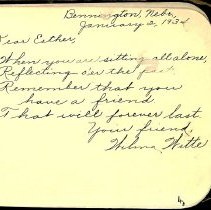 Bennington, Nebr.
January 2, 1934
Dear Esther,
When you are sitting all alone,
Reflecting o'er the past
Remember that you
have a friend
That will forever last.
Your friend,
Wilma Witte